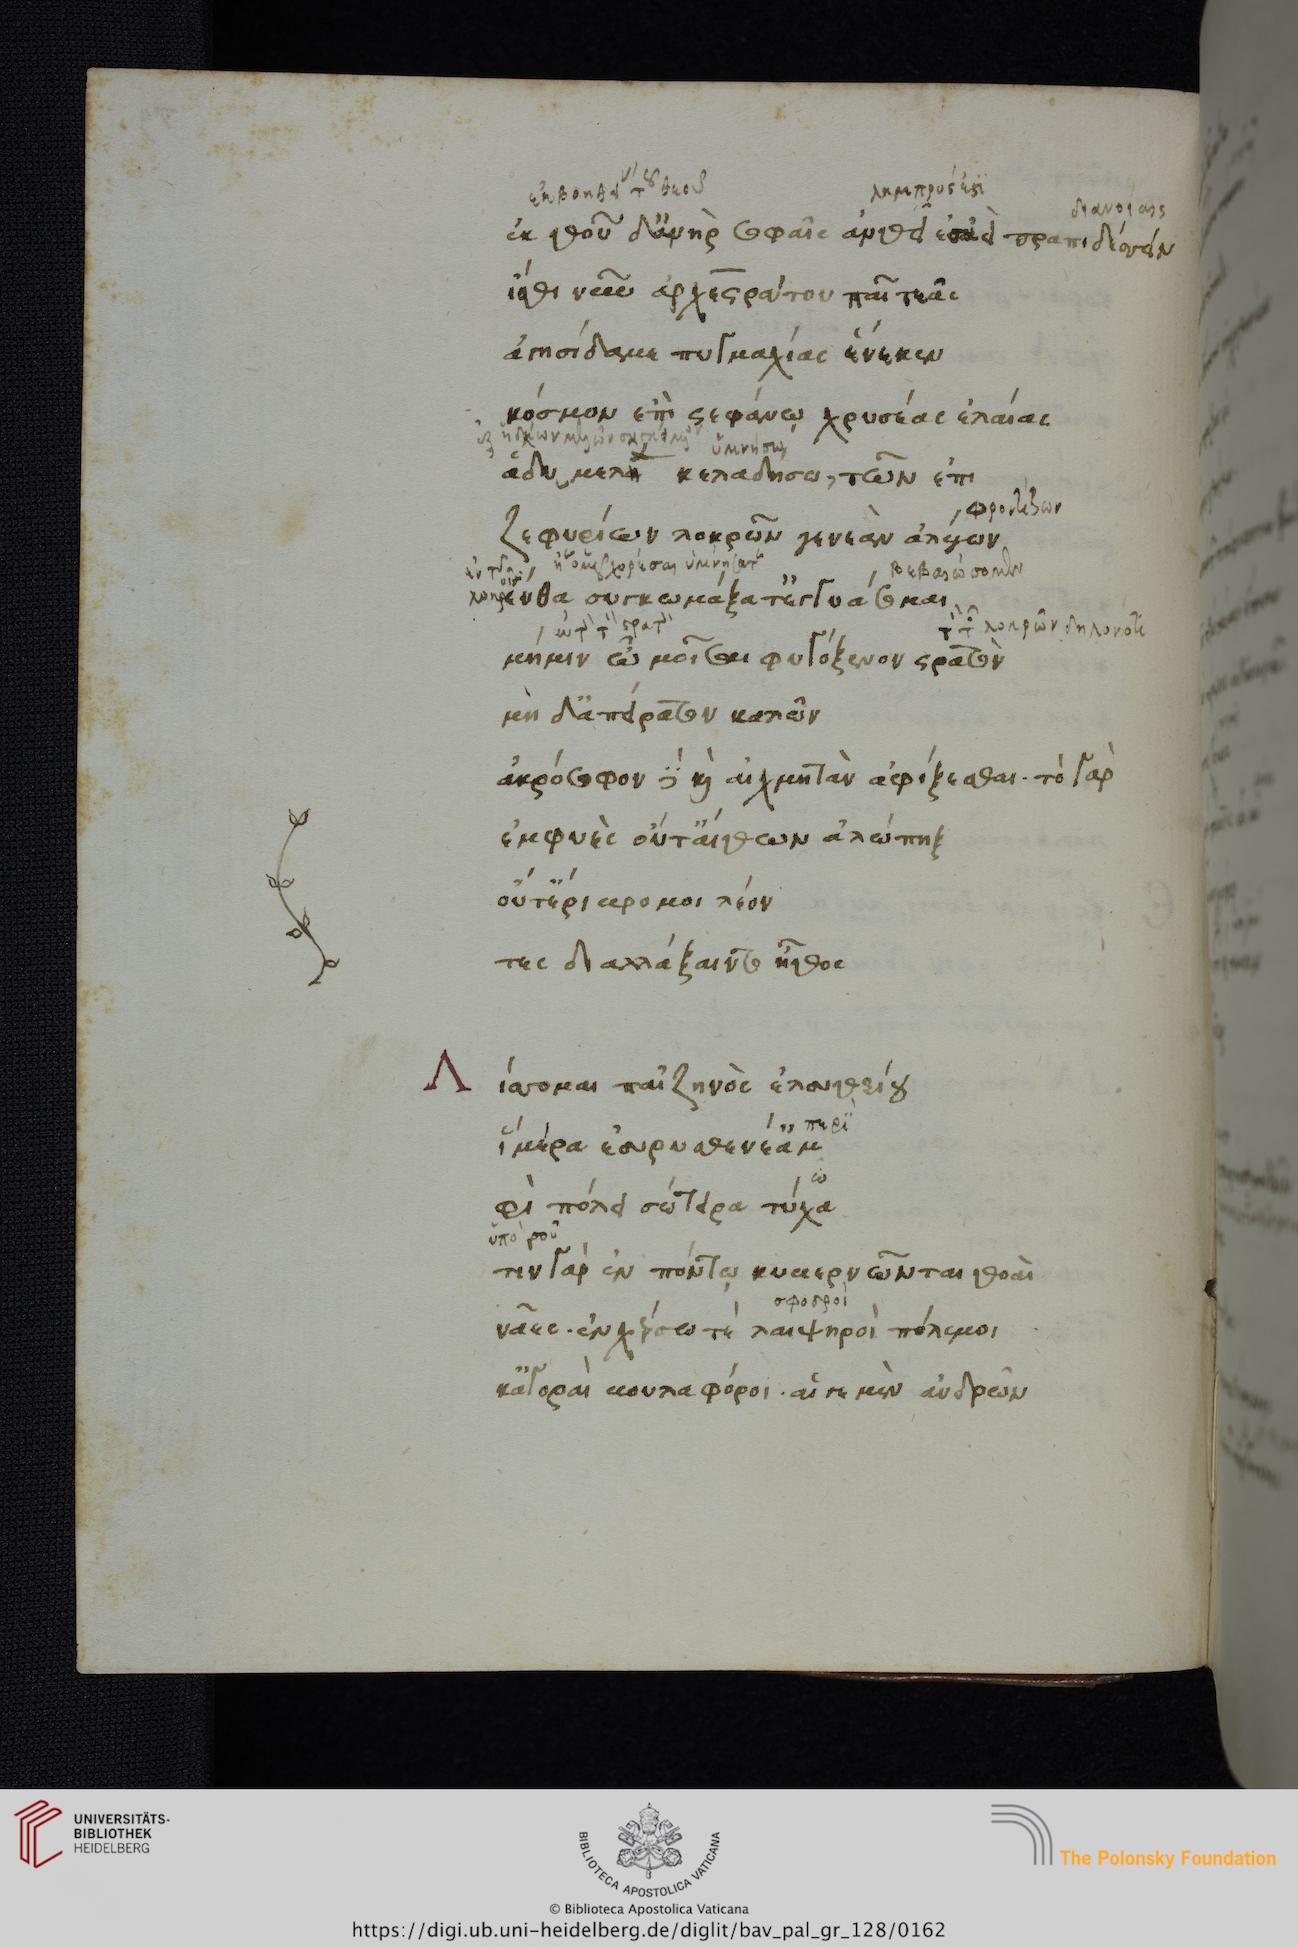 ἐκ θεοῦ δ' ἀνὴρ σοφαῖς ἀνθεῖ ἐσαεὶ πραπίδεσσιν
ἴσθι νῦν ἀρχεστράτου παῖ τεᾶς
ἁγησίδαμε πυγμαχίας ἕνεκεν
κόσμον ἐπὶ στεφάνῳ χρυσέας ἐλαίας
ἁδυμελῆ κελαδήσω, τῶν ἐπι
ζεφυρίων λοκρῶν γενεὰν ἀλέγων
ἔνθα συγκωμάξατ' ἐγγυάσομαι
μή μιν ὦ μοῖσαι φυγόξενον στρατὸν
μὴ δ' ἀπείρατον καλῶν
ἀκρόσοφον δὲ καὶ αἰχμητὰν ἀφίξεσθαι. τὸ γὰρ
ἐμφυὲς οὔτ' αἴθων ἀλώπηξ
οὔτ' ἐρίβρομοι λέον
τες διαλλάξαιντο ἦθος
Λίσσομαι παῖ ζηνὸς ἐλευθερίου
ἱμέρα εὐρυσθενέ' ἀμ
περὶ
φὶ πόλει σώτειρα τύχα
τὶν γὰρ ἐν πόντῳ κυβερνῶνται θοαὶ
σφοδροὶ
νᾶες. ἐν χέρσῳ τέ λαιψηροὶ πόλεμοι
κἀγοραὶ βουλαφόροι. αἵ γε μὲν ἀνδρῶν
UNIVERSITÄTS-
BIBLIOTHEK
HEIDELBERG
BIBLIOTECA APOSTOLICA VATICANA
The Polonsky Foundation
© Biblioteca Apostolica Vaticana
https://digi.ub.uni-heidelberg.de/diglit/bav_pal_gr_128/0162